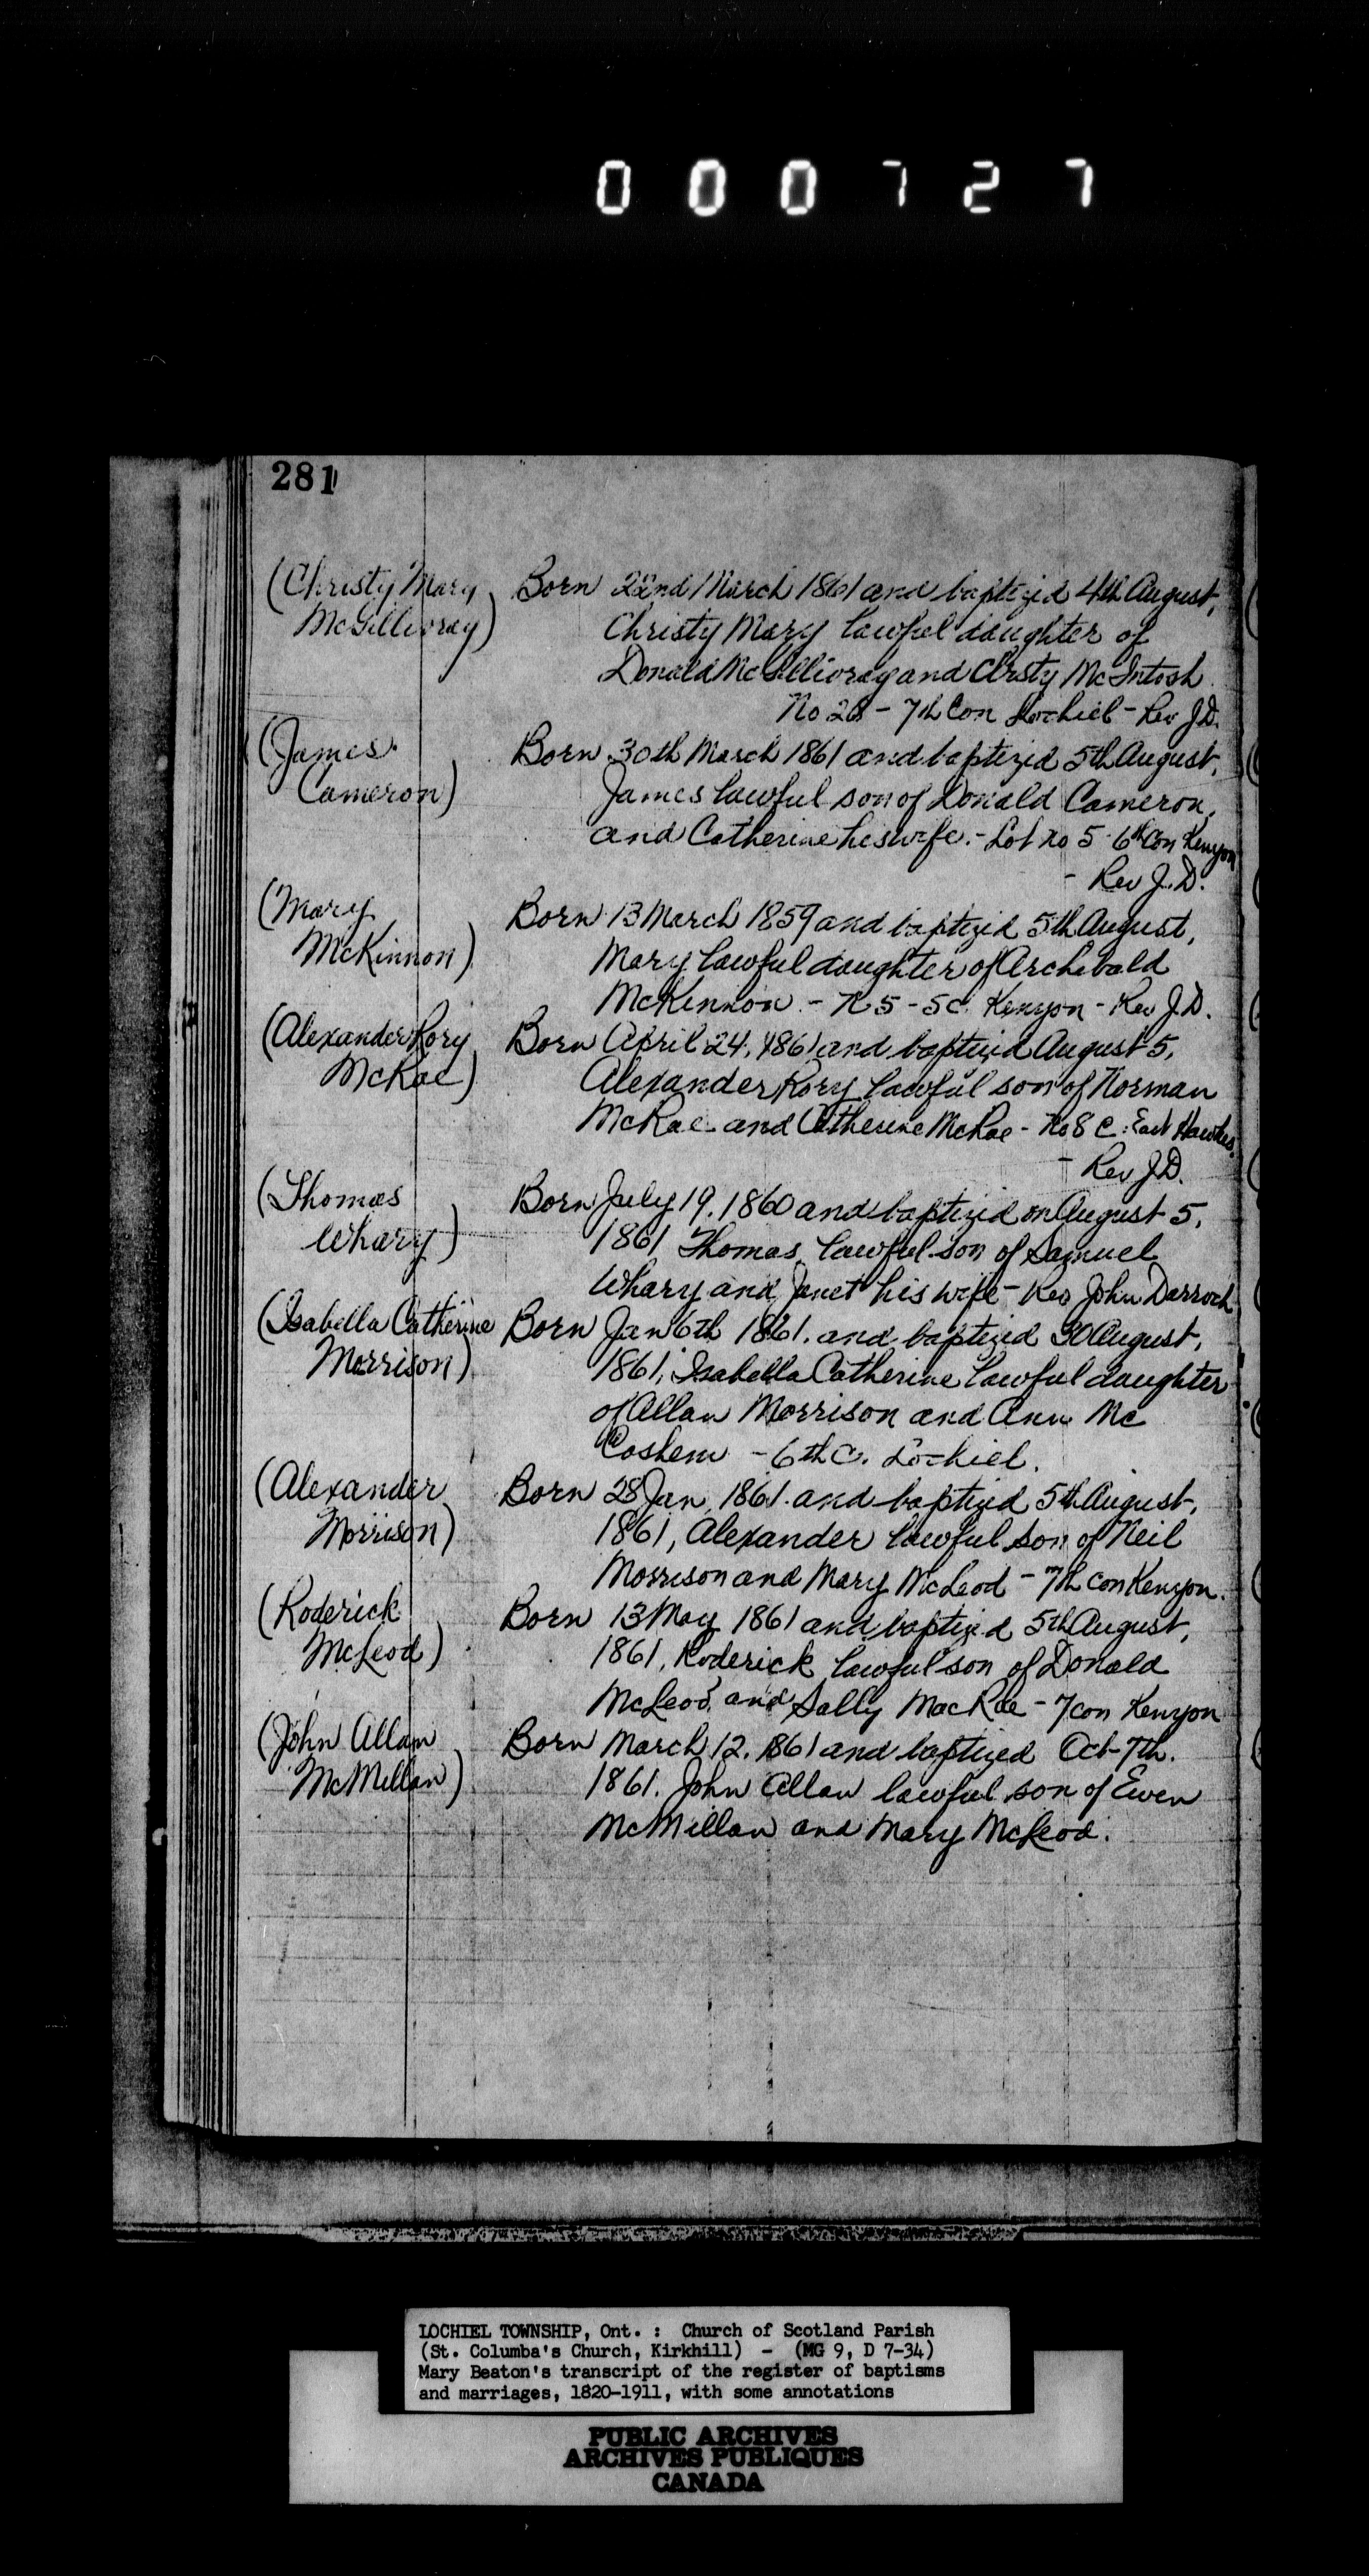 000727
281
(Christy Mary
McGillivray)
Born 22nd March 1861 and baptized 4th August,
Christy Mary lawful daughter of
Donald McGillivray and Chrsty McIntosh
No 28 - 7th Con Lochiel - Rev J.D.
(James
Cameron)
Born 30th March 1861 and baptized 5th August,
James lawful son of Donald Cameron,
and Catherine his wife. - Lot no 5 - 6th Con Kenyon
- Rev J.D.
(Mary
McKinnon)
Born 13 March 1859 and baptized 5th August,
Mary lawful daughter of Archibald
McKinnon - 5 - 5 C. Kenyon - Rev J.D.
(Alexander Rory
McRae)
Born April 24, 1861 and baptized August 5,
Alexander Rory lawful son of Norman
McRae and Catherine McRae - No 8 C. East Hawkes
- Rev J.D.
(Thomas
Whary)
Born July 19, 1860 and baptized on August 5,
1861 Thomas lawful son of Samuel
Whary and Janet his wife - Rev John Darroch
(Isabella Catherine
Morrison)
Born Jan 6th 1861. and baptized August,
1861, Isabella Catherine lawful daughter
of Allan Morrison and Ann Mc
Coshem - 6th C. Lochiel.
(Alexander
Morrison)
Born 28 Jan, 1861 and baptized 5th August,
1861, Alexander lawful son of Neil
Morrison and Mary McLeod - 7th con Kenyon.
(Roderick
McLeod)
Born 13 May 1861 and baptized 5th August,
1861, Roderick lawful son of Donald
McLeod and Sally MacRae - 7 con Kenyon
(John Allan
McMillan)
Born March 12, 1861 and baptized Oct 7th.
1861. John Allan lawful son of Ewen
McMillan and Mary McLeod.
LOCHIEL TOWNSHIP, Ont. : Church of Scotland Parish
(St. Columba's Church, Kirkhill) - (MG 9, D 7-34)
Mary Beaton's transcript of the register of baptisms
and marriages, 1820-1911, with some annotations
PUBLIC ARCHIVES
ARCHIVES PUBLIQUES
CANADA